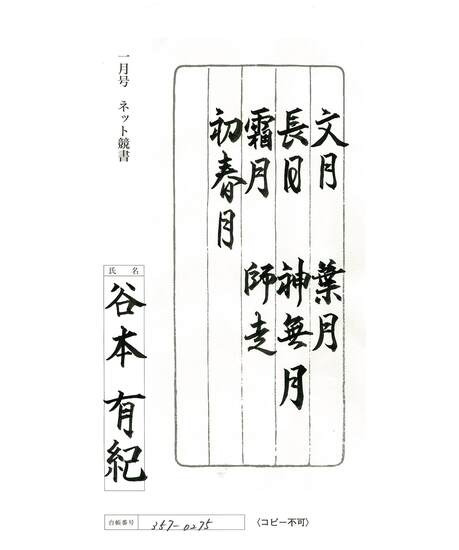 文月 葉月
長月 神無月
霜月 師走
初春月
一月号 ネット競書
氏名
谷本有紀
台帳番号 357-0275 〈コピー不可〉